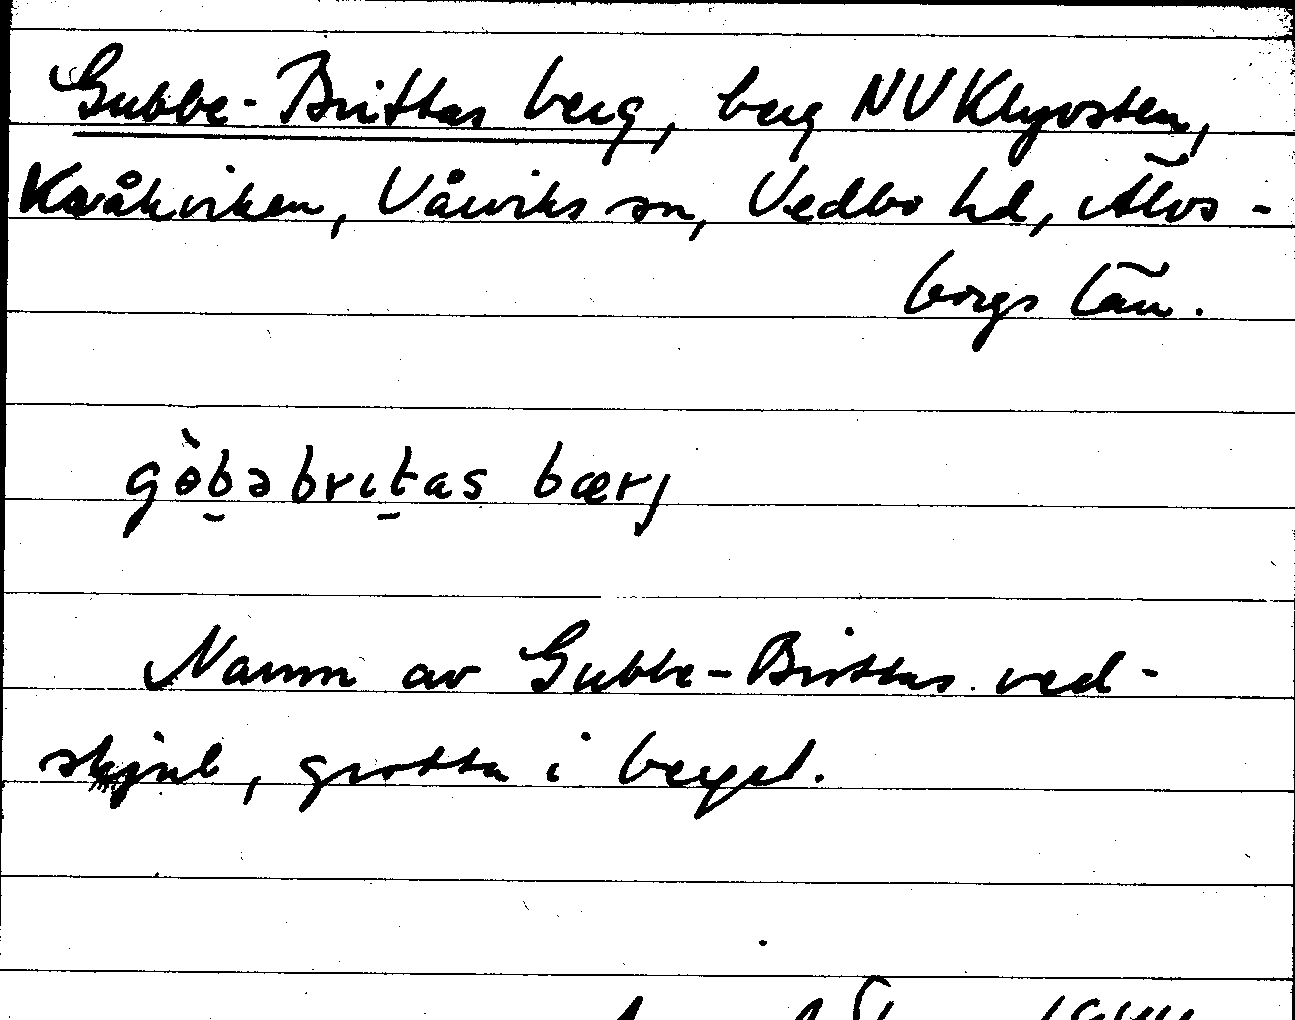 Gubbe-Brittas berg, berg NV Klyvsten,
Kråkviken, Vårviks sn, Vedbo hd, Älvs-
borgs län.
gòb̠əbrit̠as bærj
Namn av Gubbe-Brittas ved-
skjul, grotta i berget.